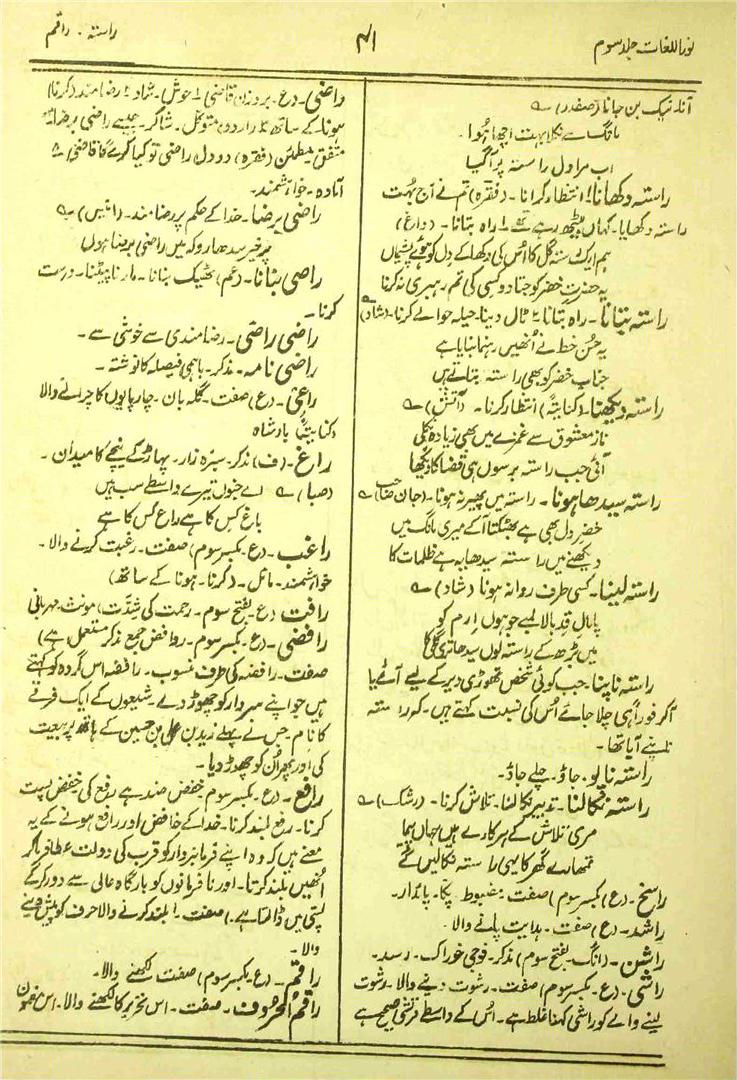 نور اللغات جلد سوم
۴۱
راستہ۔ راقم
آنا۔ نیک بن جانا (صفدر) ؎
مانگ سے نکلا بہت اچھا ہُوا۔
اب مرا دل راستہ پر آگیا
راستہ دکھانا! انتظار کرانا۔ (فقرہ) تم نے آج بہُت
راستہ دکھایا۔ کہاں بیٹھ رہے تھے ! راہ بتانا۔ (داغ)
ہم ایک رستہ گلی کا اُس کی دکھا کے دل کو ہوئے پشیماں
یہ حضرتِ خضر کو جتا دو کسی کی تم رہبری نہ کرنا
راستہ بتانا۔ راہ بتانا ۲ ٹال دینا۔ حیلہ حوالے کرنا۔ (شاد) ؎
یہ حُسنِ خط نے اُنھیں رہنما بنایا ہے
جناب خضر کو بھی راستہ بتاتے ہیں
راستہ دیکھنا۔ (کنایتہً) انتظار کرنا۔ (آتش) ؎
ناز معشوق سے غمزے میں بھی زیادہ نکلی
آئی جب راستہ برسوں ہی قضا کا دیکھا
راستہ سیدھا ہونا۔ راستہ میں پھیر نہ ہونا۔ (جان صاحب) ؎
خضرِ دل بھی ہے بھٹکتا آکے میری مانگ میں
دیکھنے میں راستہ سیدھا یہ ہے ظلمات کا
راستہ لینا۔ کسی طرف روانہ ہونا (شاد) ؎
پامال قدِ بالا لمبے جو ہوں اِرم کو
میں بڑھ کے راستہ لوں سیدھا تری گلی کا
راستہ ناپنا۔ جب کوئی شخص تھوڑی دیر کے لیے آئے یا
آکر فوراً ہی چلا جائے اُس کی نسبت کہتے ہیں۔ کہ راستہ
ناپنے آیا تھا۔
راستہ ناپو۔ جاؤ۔ چلے جاؤ۔
راستہ نکالنا۔ تدبیر نکالنا۔ تلاش کرنا۔ (رشک) ؎
مری تلاش کے ہرکارے ہیں جہاں پیما
تمھارے گھر کا یہی راستہ نکالیں گے
راسخ۔ (ع) بکسر سوم) صفت۔ مضبوط۔ پکا۔ پائدار۔
راشد۔ (ع) صفت۔ ہدایت پانے والا۔
راشن۔ (انگ۔ بفتح سوم) مذکر۔ فوجی خوراک۔ رسد۔
راشی۔ (ع۔ بکسر سوم) صفت۔ رشوت دینے والا۔ رشوت
لینے والے کو راشی کہنا غلط ہے۔ اُس کے واسطے مرتشی صحیح ہے
راضی۔ (ع۔ بروزن قاضی) ۱ خوش۔ شاد ۲ رضامند (کرنا)
ہونا۔ کے ساتھ ۳ (اردو) متوکل۔ شاکر۔ جیسے راضی برضا ۴
متفق مطمئن (فقرہ) دو دل راضی تو کیا کرے گا قاضی! ۵
آمادہ۔ خواہشمند۔
راضی برضا۔ خدا کے حکم پر رضامند۔ (انیس) ؎
پر خیر سدھارو کہ میں راضی برضا ہوں
راضی بنانا۔ (عم) ٹھیک بنانا۔ مارنا پیٹنا۔ درست
کرنا۔
راضی راضی۔ رضامندی سے خوشی سے۔
راضی نامہ۔ مذکر۔ باہمی فیصلہ کا نوشتہ۔
راعی۔ (ع) صفت۔ گلہ بان۔ چارپایوں کا چرانے والا
(کنایتہً) بادشاہ
راغ۔ (ف) مذکر۔ سبزہ زار۔ پہاڑ کے نیچے کا میدان۔
(صبا) ؎ اے جنوں تیرے واسطے سب ہیں
باغ کس کا ہے راغ کس کا ہے
راغب۔ (ع۔ بکسر سوم) صفت۔ رغبت کرنے والا۔
خواہشمند۔ مائل۔ (کرنا۔ ہونا کے ساتھ)
رافت (ع۔ بفتح سوم۔ رحمت کی شدّت) مونث۔ مہربانی
رافضی۔ (ع۔ بکسر سوم۔ روافض جمع مذکر مستعمل ہے)
صفت۔ رافضہ کی طرف منسوب۔ رافضہ اس گروہ کو کہتے
ہیں جو اپنے سردار کو چھوڑ دے۔ شیعوں کے ایک فرقے
کا نام۔ جس نے پہلے زید بن علی بن حسین کے ہاتھ پر بیعت
کی اور پھر اُن کو چھوڑ دیا۔
رافع۔ (ع۔ بکسر سوم۔ خفض ضد ہے رفع کی خفض پست
کرنا۔ رفع بلند کرنا۔ خدا کے خافض اور رافع ہونے کے یہ
معنے ہیں کہ وہ اپنے فرمانبردار کو قرب کی دولت عطا فرما کر
اُنھیں بلند کرتا۔ اور نافرمانوں کو بارگاہ عالی سے دور کرکے
پستی میں ڈالتا ہے۔) صفت ۱ بلند کرنے والا حرف کو پیش دینے
والا۔
راقم۔ (ع۔ بکسر سوم) صفت لکھنے والا۔
راقم الحروف۔ صفت۔ اس تحریر کا لکھنے والا۔ اس مضمون